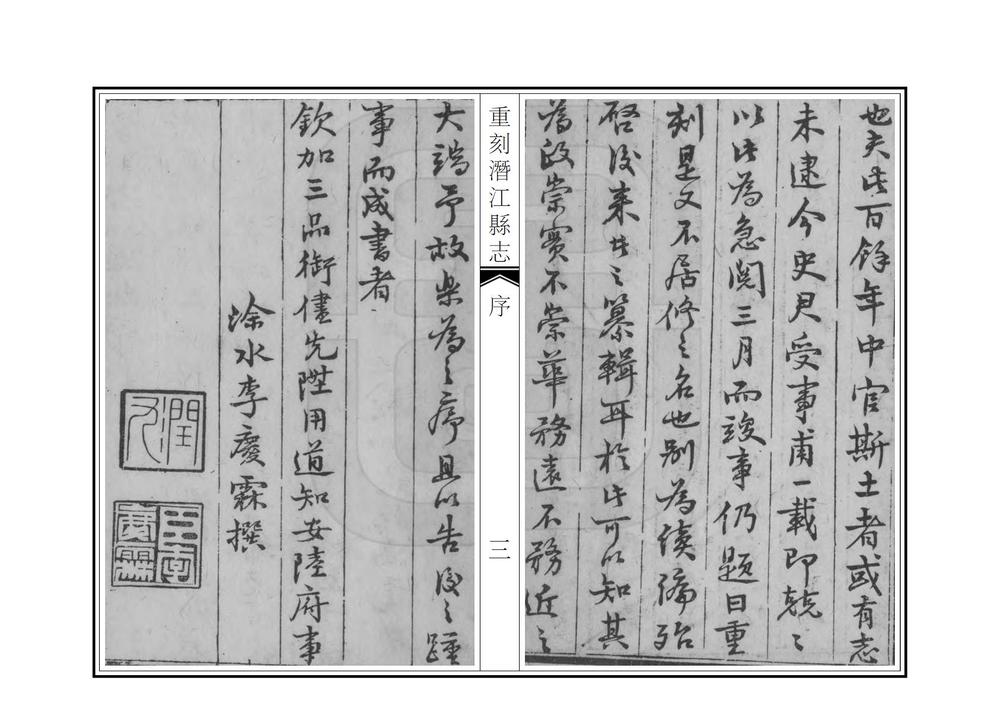 也夫此百餘年中官斯土者或有志
未逮今史君受事甫一載即兢〻
以此為急閱三月而竣事仍題曰重
刻是又不居修之名也別為續編殆
啓後来者之纂輯耳於此可以知其
為政崇實不崇華務遠不務近之
重刻潛江縣志
序
三
大端予故樂為之序且以告後之踵
事而成書者
欽加三品銜儘先陞用道知安陸府事
涂水李慶霖撰
潤九
慶霖